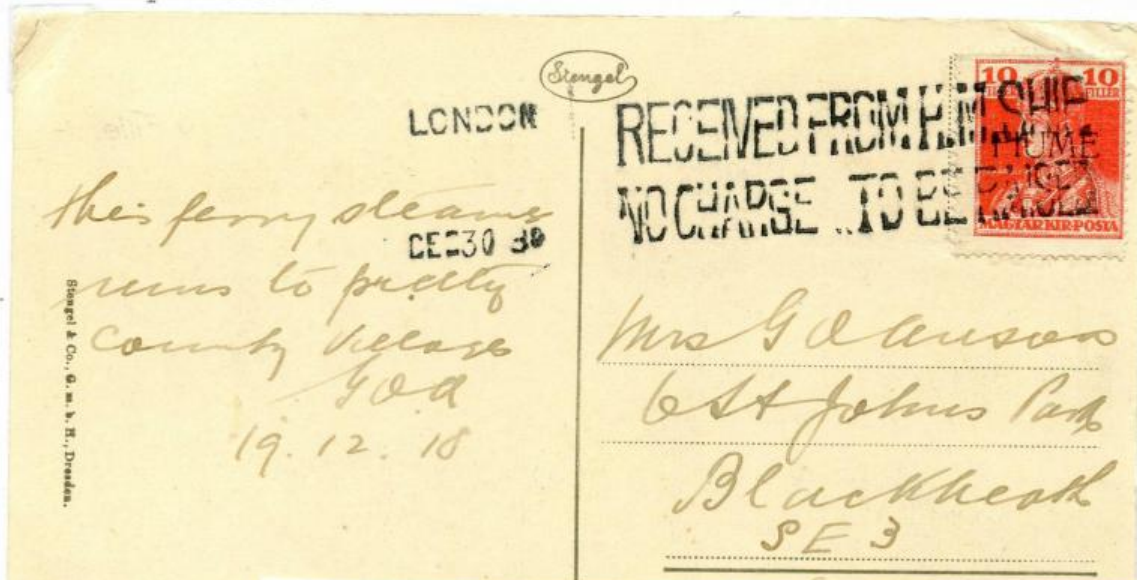 Stengel
LONDON
DEC 30
RECEIVED FROM H.M. SHIP
NO CHARGE TO BE RAISED
10 10
FILLER FILLER
FIUME
MAGYAR KIR. POSTA
this ferry steamer
runs to pretty
County villages
GOA
19.12.18
Stengel & Co., G. m. b. H., Dresden.
Mrs G O Anson
6 St Johns Park
Blackheath
SE 3